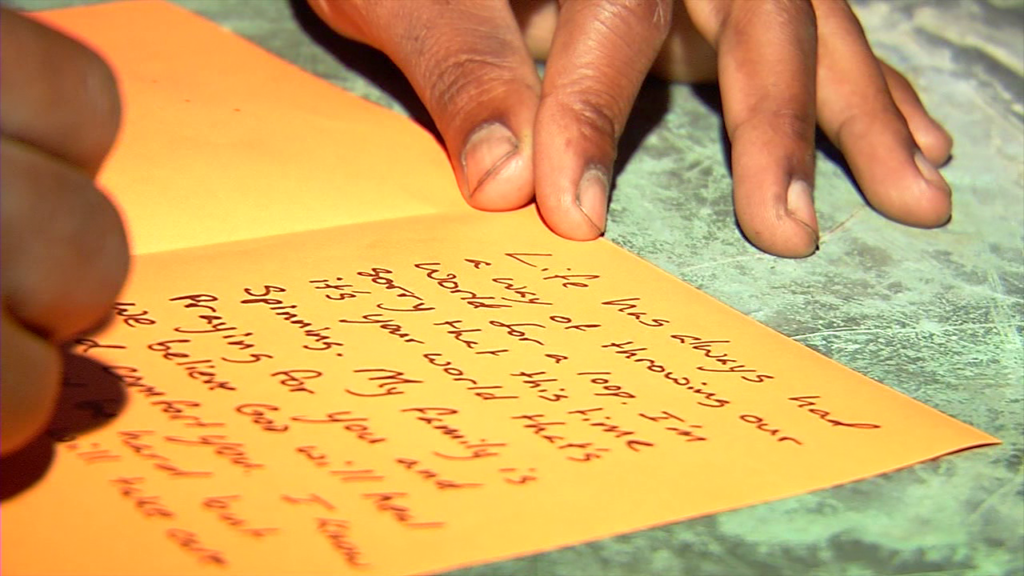 Life has always had
a way of throwing our
World for a loop. I'm
Sorry that this time
it's your world that's
Spinning. My family is
Praying for you and
we believe God will heal
comfort you. I know
hard but
take our